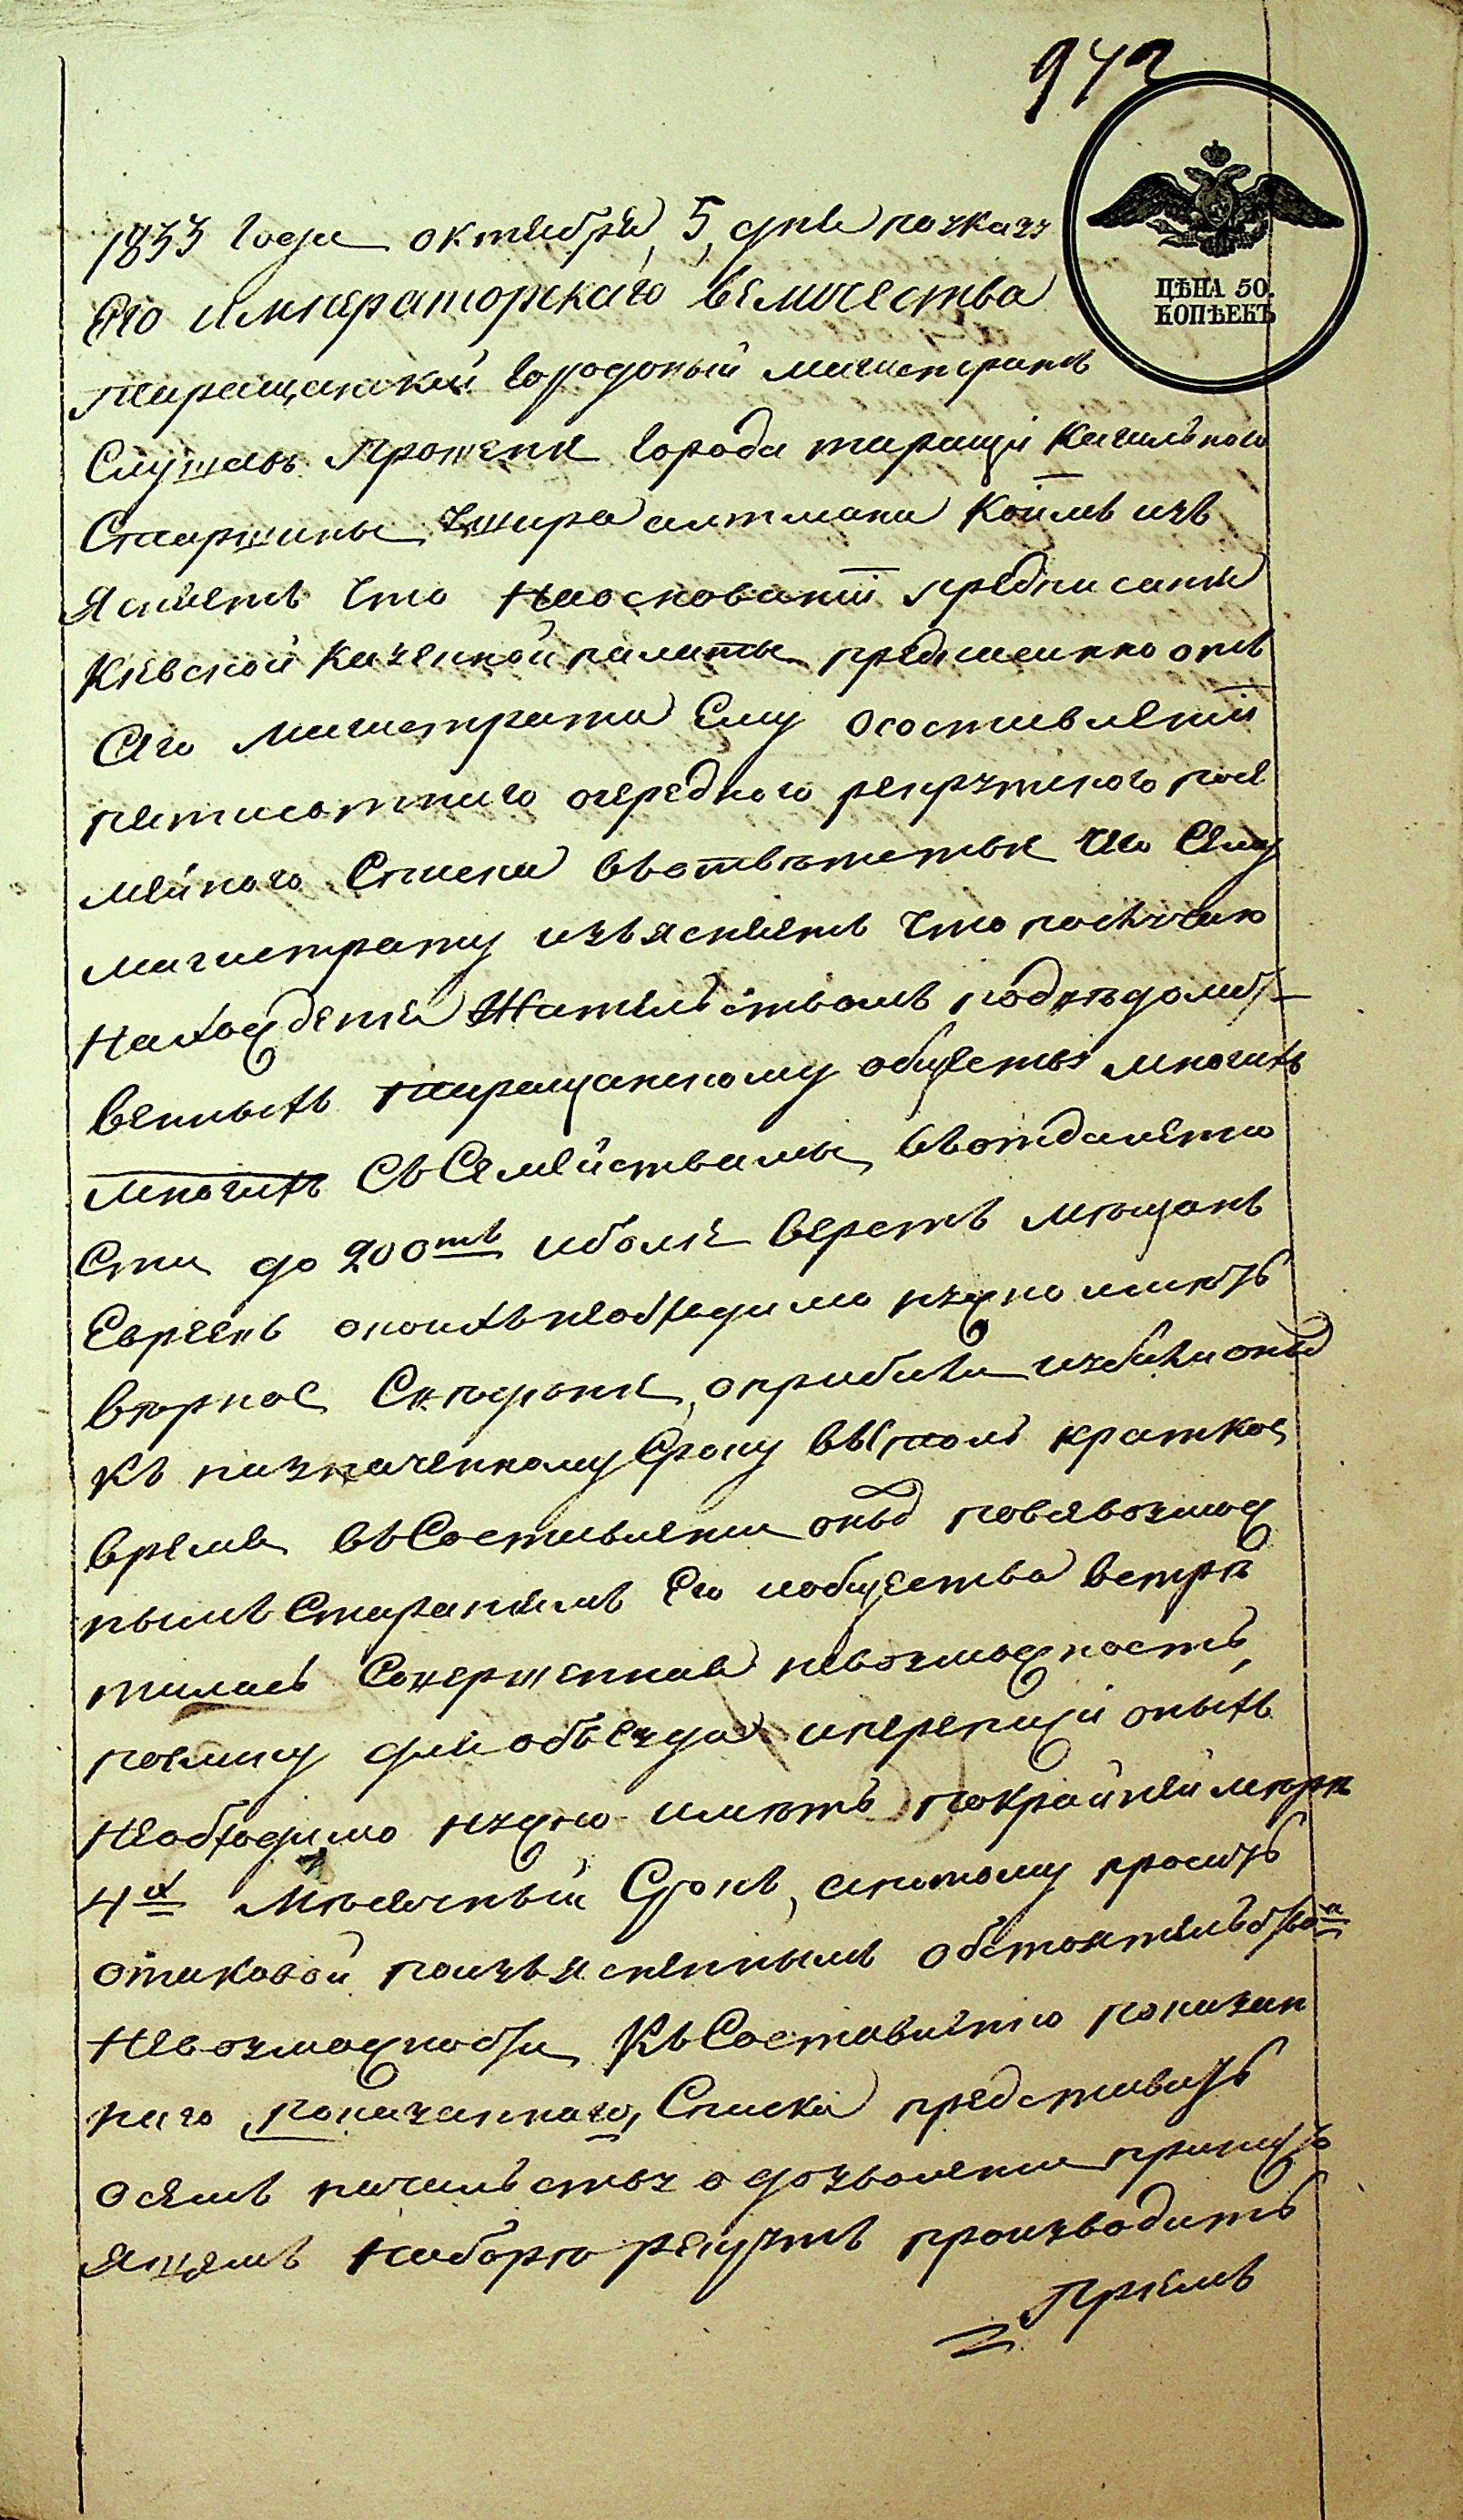 942
ЦѢНА 50.
КОПѢЕКЪ
1833 Года октября 5 дня поуказу
Его императорскаго величества
Таращанскій Городовый магистратъ
Слушавъ Прошеніе города таращи Кагального
Старшины альтмана Коимъ изъ
Ясняетъ Что Наоснованіи предписанія
Кіевской Казенной палаты предписанно отъ
Сего Магистрата Ему осоставленіи
очередного рекрутского посе
мейного Списка Сему
магистрату изъясняетъ Что послучаю
Нахожденія Жительствомъ подвѣдомст
венныхъ таращанскому обществу многихъ
многихъ СъСемействамы въотдаленно
сти до 200тъ иболѣе верстъ мѣщанъ
Евреевъ онихънеобходимо нужно имѣть
вѣрное Свѣденіе
Къ назначенному Сроку въСтоль краткое
время въСоставленіи повсевозмож
нымъ Стараніямъ Его иобщества встрѣ
тилась Совершенная невозможность,
поелику дляобъезда онихъ
Необходимо нужно имѣть покрайней мѣрѣ
4х Мѣсячный Срокъ, апотому проситъ
отаковой поизъясненнымъ обстоятельствам
Невозможности КъСоставленію показан
наго показанного, Списка представить
осемъ начальству одозволеніи
Наборѣ рекрутъ производить
Пріемъ